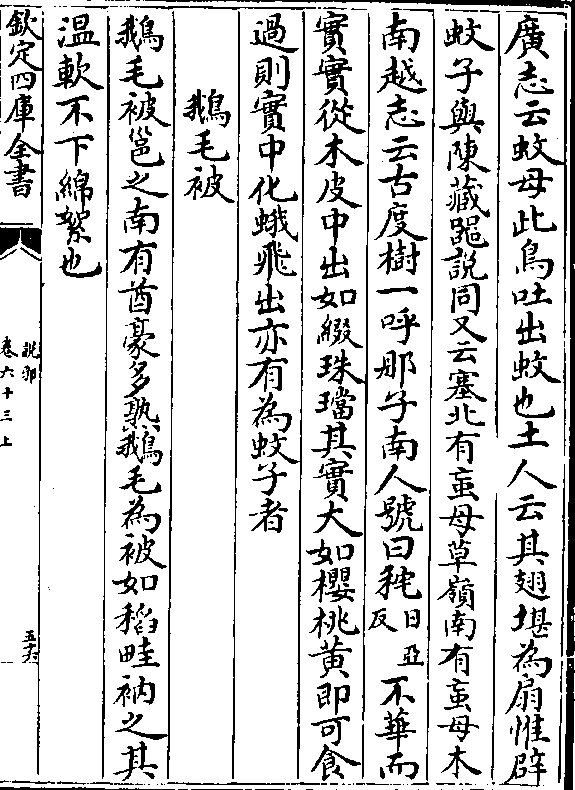 廣志云蚊母此鳥吐出蚊也土人云其翅堪為扇惟辟
蚊子與陳藏噐説同又云塞北有䖟母草嶺南有䖟母木
南越志云古度樹一呼那子南人號曰㭇日亞反不華而
實實從木皮中出如綴珠璫其實大如櫻桃黄即可食
過則實中化蛾飛出亦有為蚊子者
鵝毛被
鵝毛被邕之南有酋豪多熟鵝毛為被如稻畦衲之其
温軟不下綿絮也
欽定四庫全書
説郛
卷六十三上
五十六